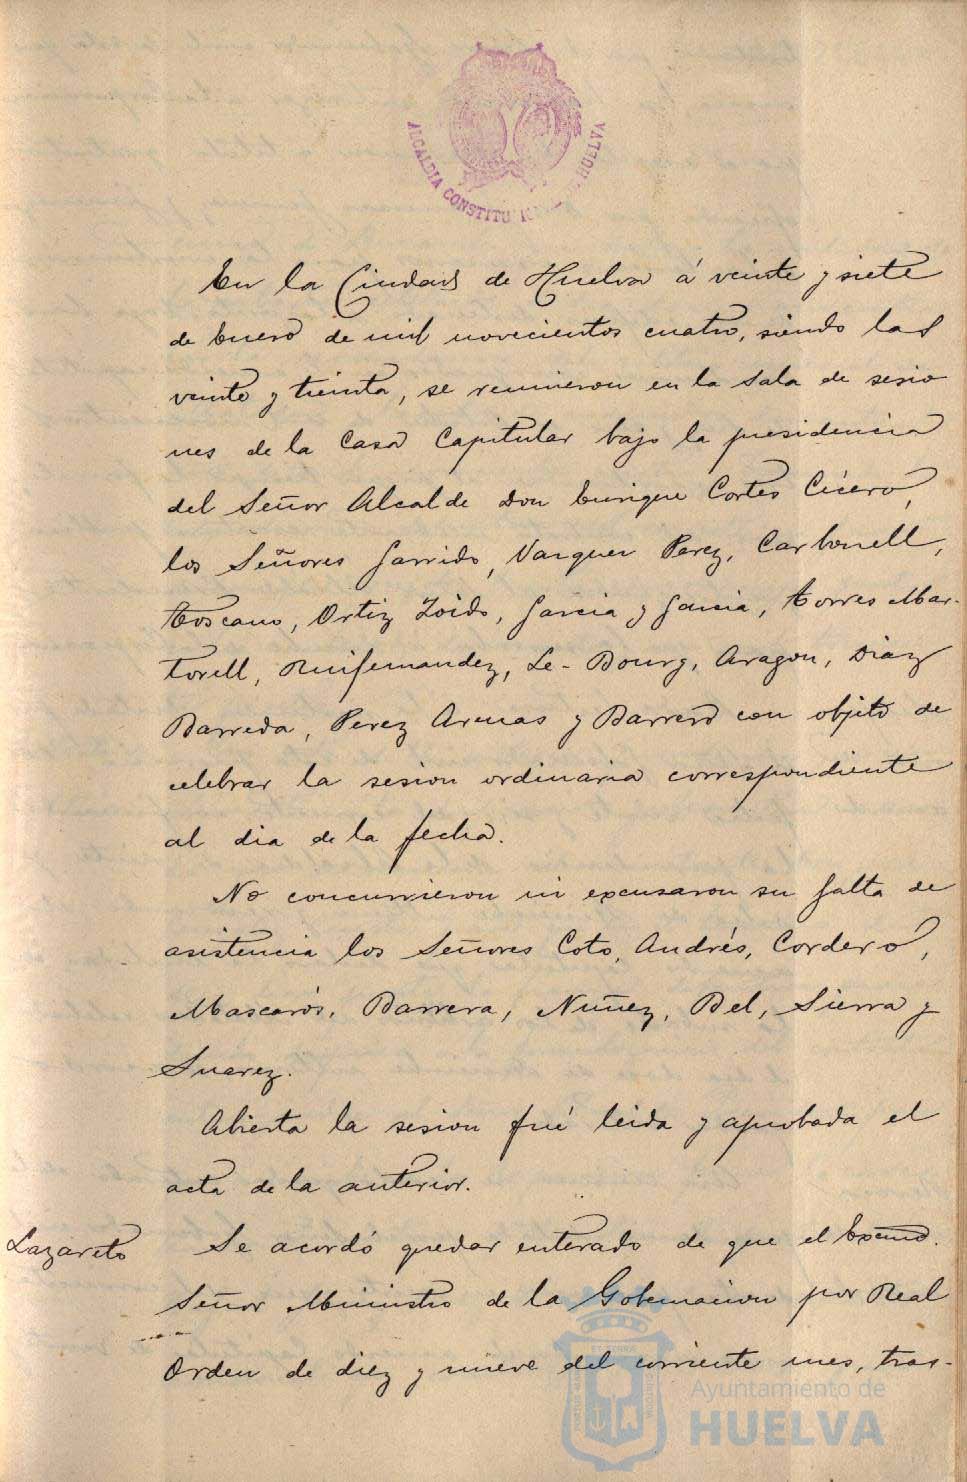 ALCALDIA CONSTITUCIONAL DE HUELVA
En la Ciudad de Huelva á veinte y siete
de Enero de mil novecientos cuatro, siendo las
veinte y treinta, se reunieron en la Sala de sesio
nes de la Casa Capitular bajo la presidencia
del Señor Alcalde Don Enrique Cortes Cícero,
los Señores Garrido, Vazquez Perez, Carbonell,
Toscano, Ortiz Zoido, Garcia y Garcia, Torres Mar-
torell, Ruifernandez, Le-Bourg, Aragon, Diaz
Barreda, Perez Arenas y Barrero con objeto de
celebrar la sesion ordinaria correspondiente
al dia de la fecha.
No concurrieron ni excusaron su falta de
asistencia los Señores Coto, Andrés, Cordero,
Mascarós, Barrera, Nuñez, Bel, Sierra y
Suarez.
Abierta la sesion fué leida y aprobada el
acta de la anterior.
Lazareto Se acordó quedar enterado de que el Excmo.
Señor Ministro de la Gobernacion por Real
Orden de diez y nueve del corriente mes, tras-
Ayuntamiento de
HUELVA